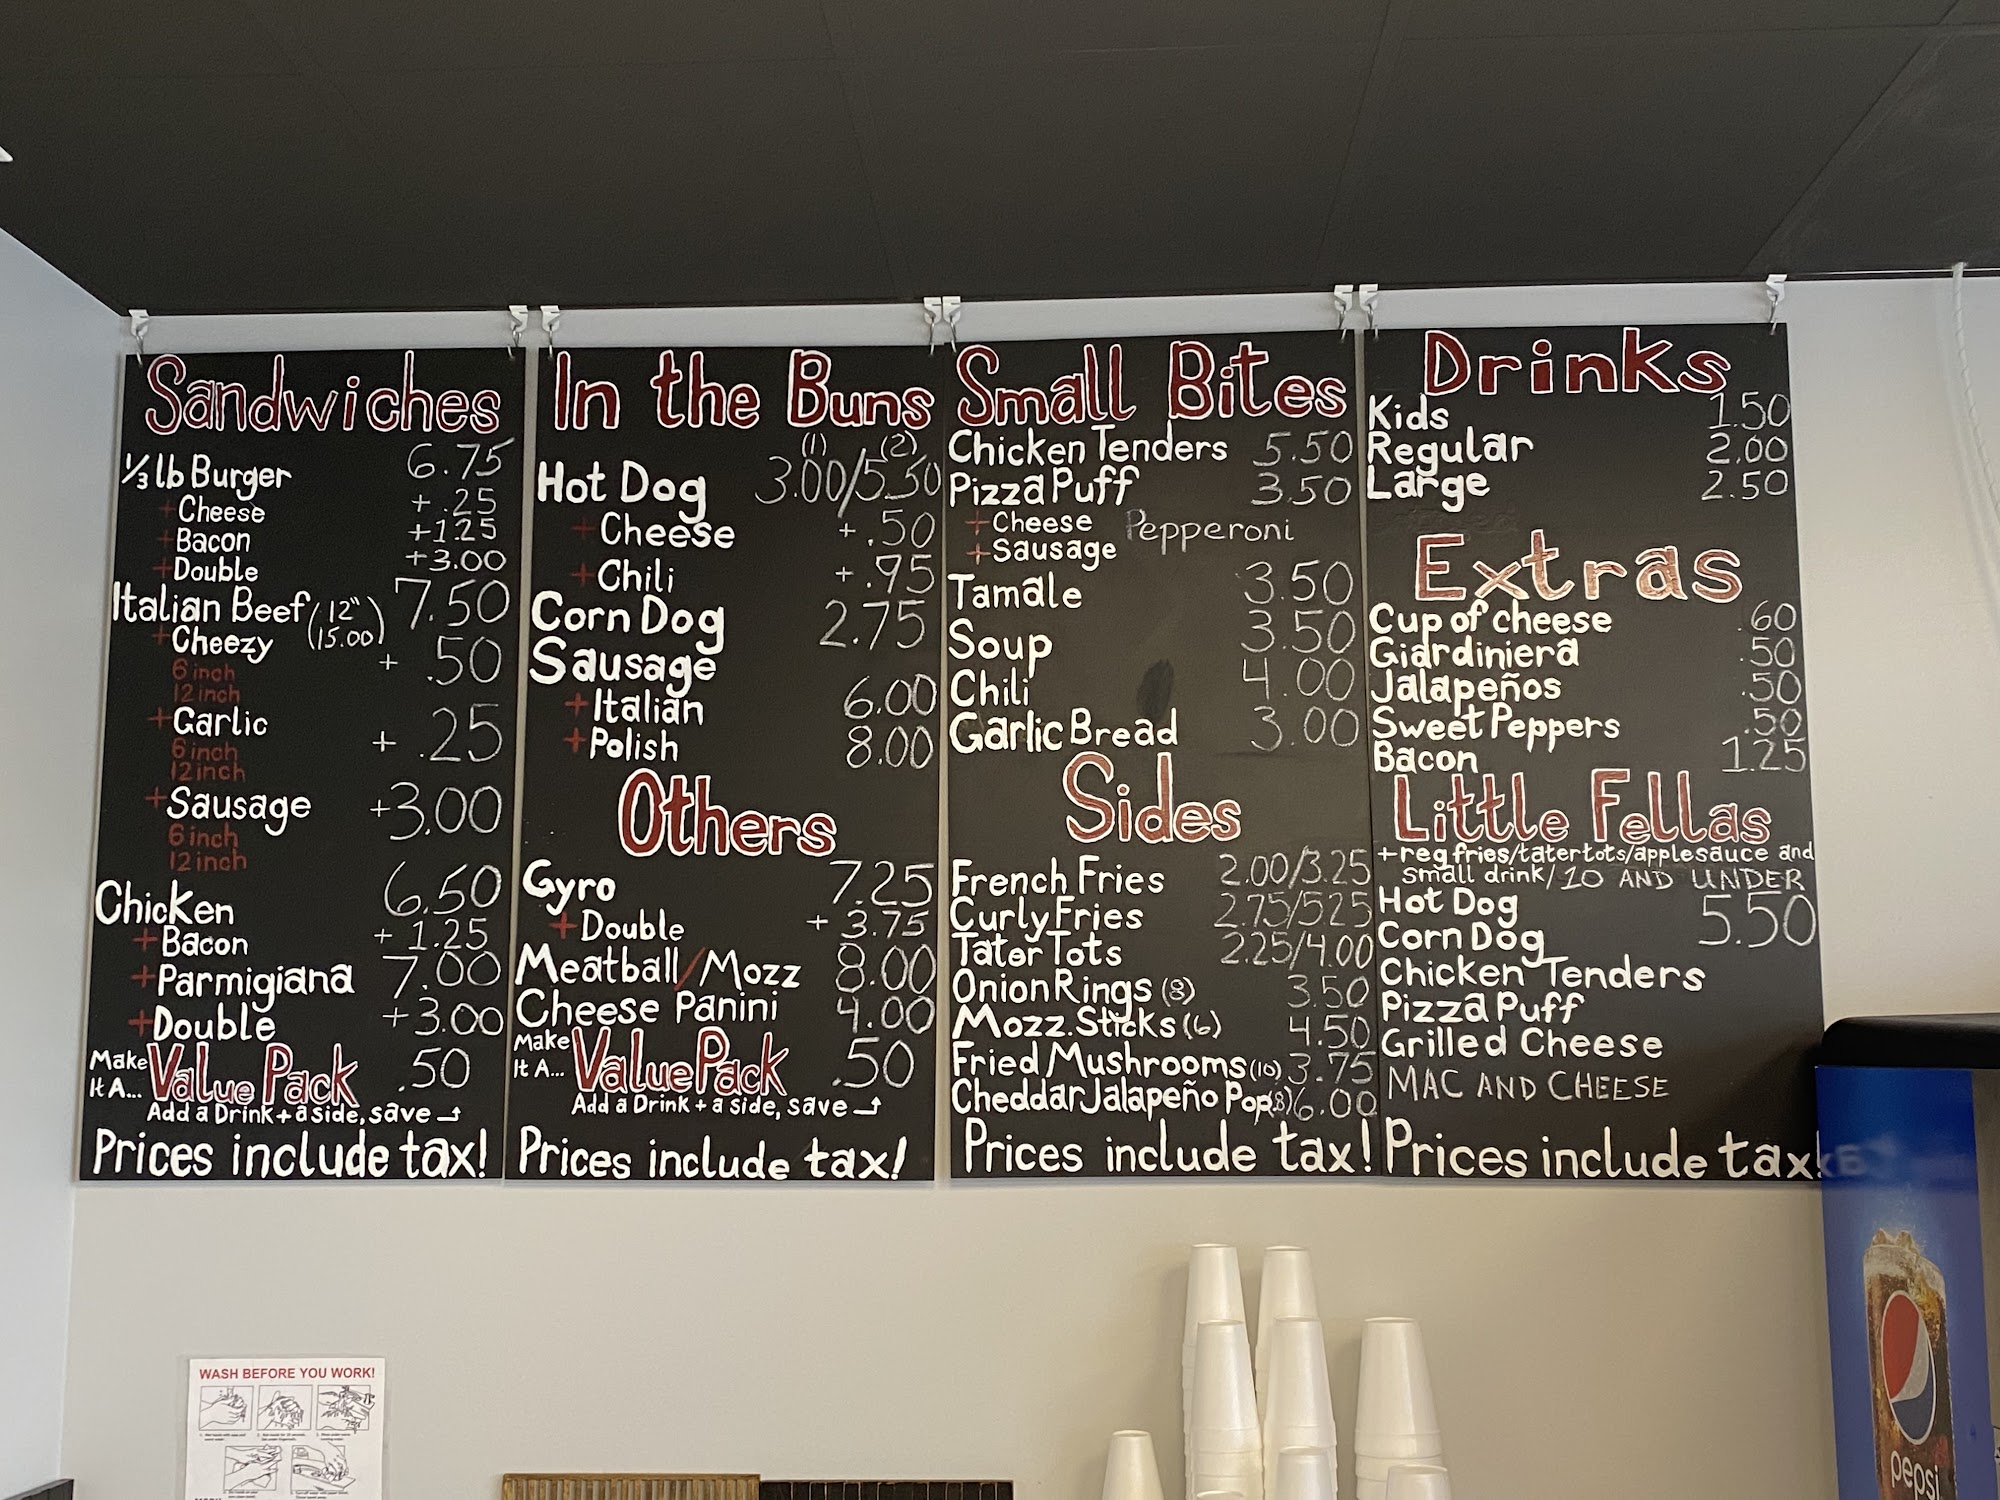 Sandwiches
1/3 lb Burger 6.75
+ Cheese + .25
+ Bacon +1.25
+ Double +3.00
Italian Beef (12" 15.00) 7.50
+ Cheezy + .50
6 inch
12 inch
+ Garlic + .25
6 inch
12 inch
+ Sausage +3.00
6 inch
12 inch
Chicken 6.50
+ Bacon + 1.25
+ Parmigiana 7.00
+ Double +3.00
Make It A... Value Pack .50
Add a Drink + a side, save
Prices include tax!
In the Buns
(1) (2)
Hot Dog 3.00/5.50
+ Cheese + .50
+ Chili + .95
Corn Dog 2.75
Sausage
+ Italian 6.00
+ Polish 8.00
Others
Gyro 7.25
+ Double + 3.75
Meatball/Mozz 8.00
Cheese Panini 4.00
Make It A... Value Pack .50
Add a Drink + a side, save
Prices include tax!
Small Bites
Chicken Tenders 5.50
Pizza Puff 3.50
+ Cheese Pepperoni
+ Sausage
Tamale 3.50
Soup 3.50
Chili 4.00
Garlic Bread 3.00
Sides
French Fries 2.00/3.25
Curly Fries 2.75/525
Tater Tots 2.25/4.00
Onion Rings (8) 3.50
Mozz. Sticks (6) 4.50
Fried Mushrooms (10) 3.75
Cheddar Jalapeño Pop(8) 6.00
Prices include tax!
Drinks
Kids 1.50
Regular 2.00
Large 2.50
Extras
Cup of cheese .60
Giardiniera .50
Jalapeños .50
Sweet Peppers .50
Bacon 1.25
Little Fellas
+reg fries/tater tots/applesauce and
small drink/10 AND UNDER
Hot Dog 5.50
Corn Dog
Chicken Tenders
Pizza Puff
Grilled Cheese
MAC AND CHEESE
Prices include tax!
WASH BEFORE YOU WORK!
pepsi